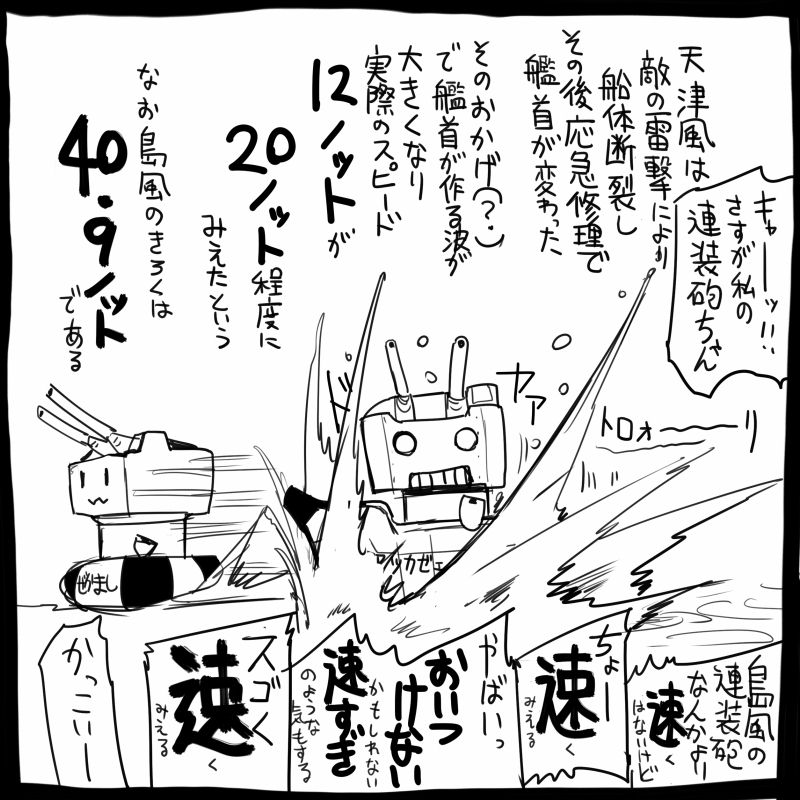 天津風は
敵の雷撃により
船体断裂し
その後応急修理で
艦首が変わった
そのおかげ(?)
で艦首が作る波が
大きくなり
実際のスピード
12ノットが
20ノット程度に
みえたという
なお島風のきろくは
40.9ノット
である
キャーーッ!!
さすが私の
連装砲ちゃん
ヤァ
トロォーーーリ
ド
ぜかまし
島風の
連装砲
なんかより
速く
はないけど
ちょー
速く
みえる
やばいっ
おいつ
けない
かもしれない
速すぎ
のような
気もする
スゴく
速く
みえる
かっこいー